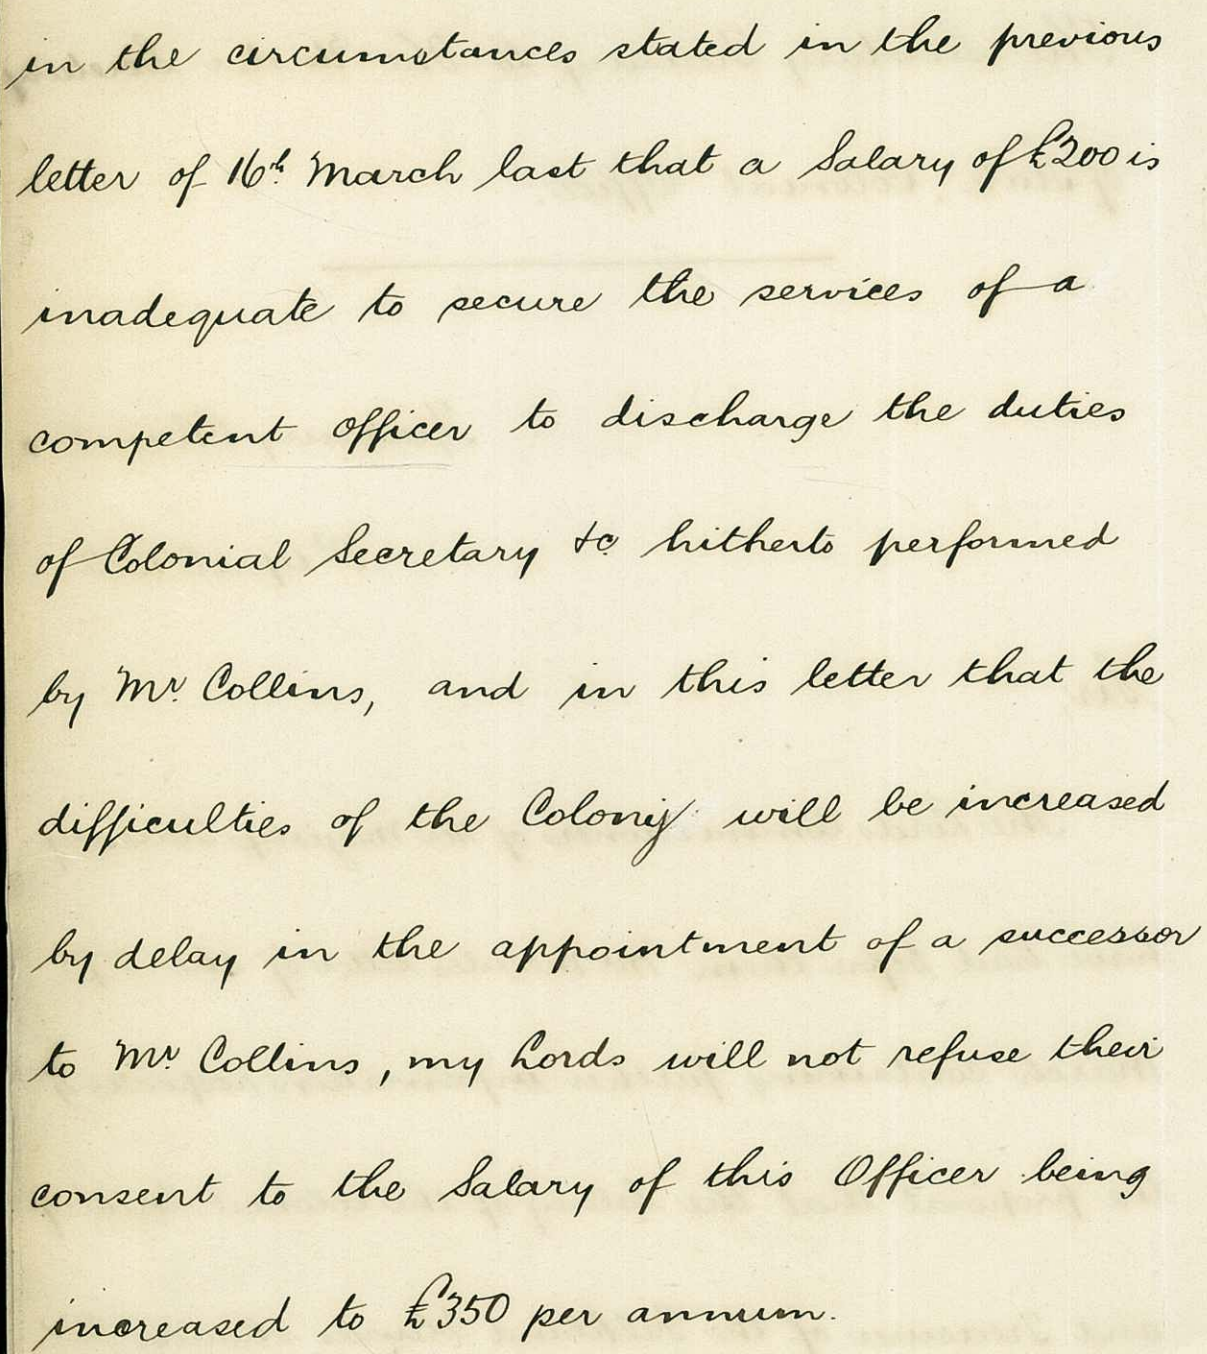 in the circumstances stated in the previous
letter of 16th March last that a Salary of £200 is
inadequate to secure the services of a
competent Officer to discharge the duties
of Colonial Secretary &c hitherto performed
by Mr. Collins, and in this letter that the
difficulties of the Colony will be increased
by delay in the appointment of a successor
to Mr. Collins, my Lords will not refuse their
consent to the Salary of this Officer being
increased to £350 per annum.